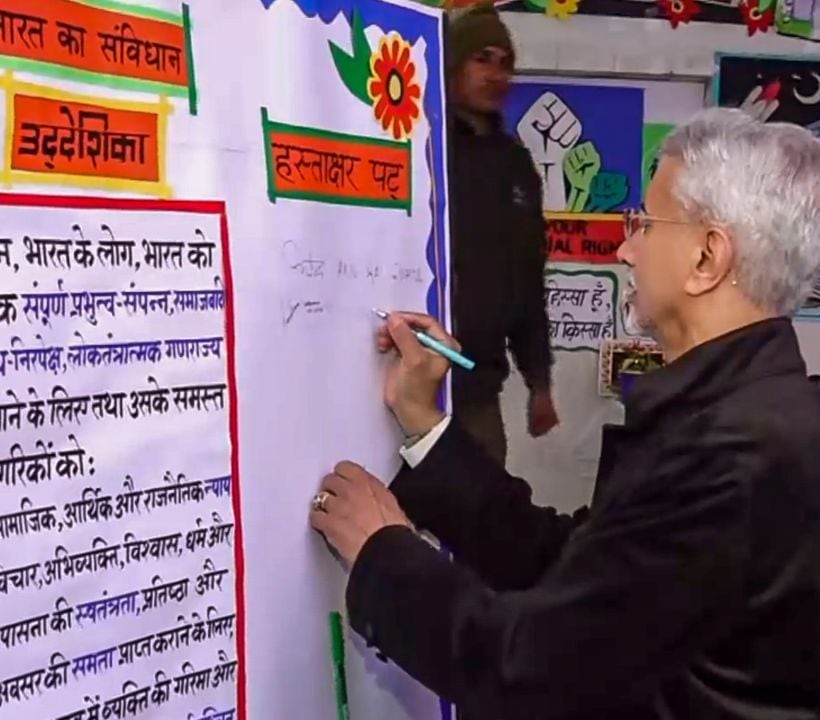 भारत का संविधान
उद्देशिका
हस्ताक्षर पट्
भारत के लोग, भारत को
संपूर्ण प्रभुत्व-सम्पन्न, समाजवादी
निरपेक्ष, लोकतंत्रात्मक गणराज्य
के लिए तथा उसके समस्त
को:
आर्थिक और राजनैतिक न्याय
अभिव्यक्ति, विश्वास, धर्म और
की स्वतंत्रता, प्रतिष्ठा और
अवसर की समता प्राप्त कराने के लिए,
में व्यक्ति की गरिमा और
YOUR
RIGH
हिस्सा हूँ,
क़िस्सा है